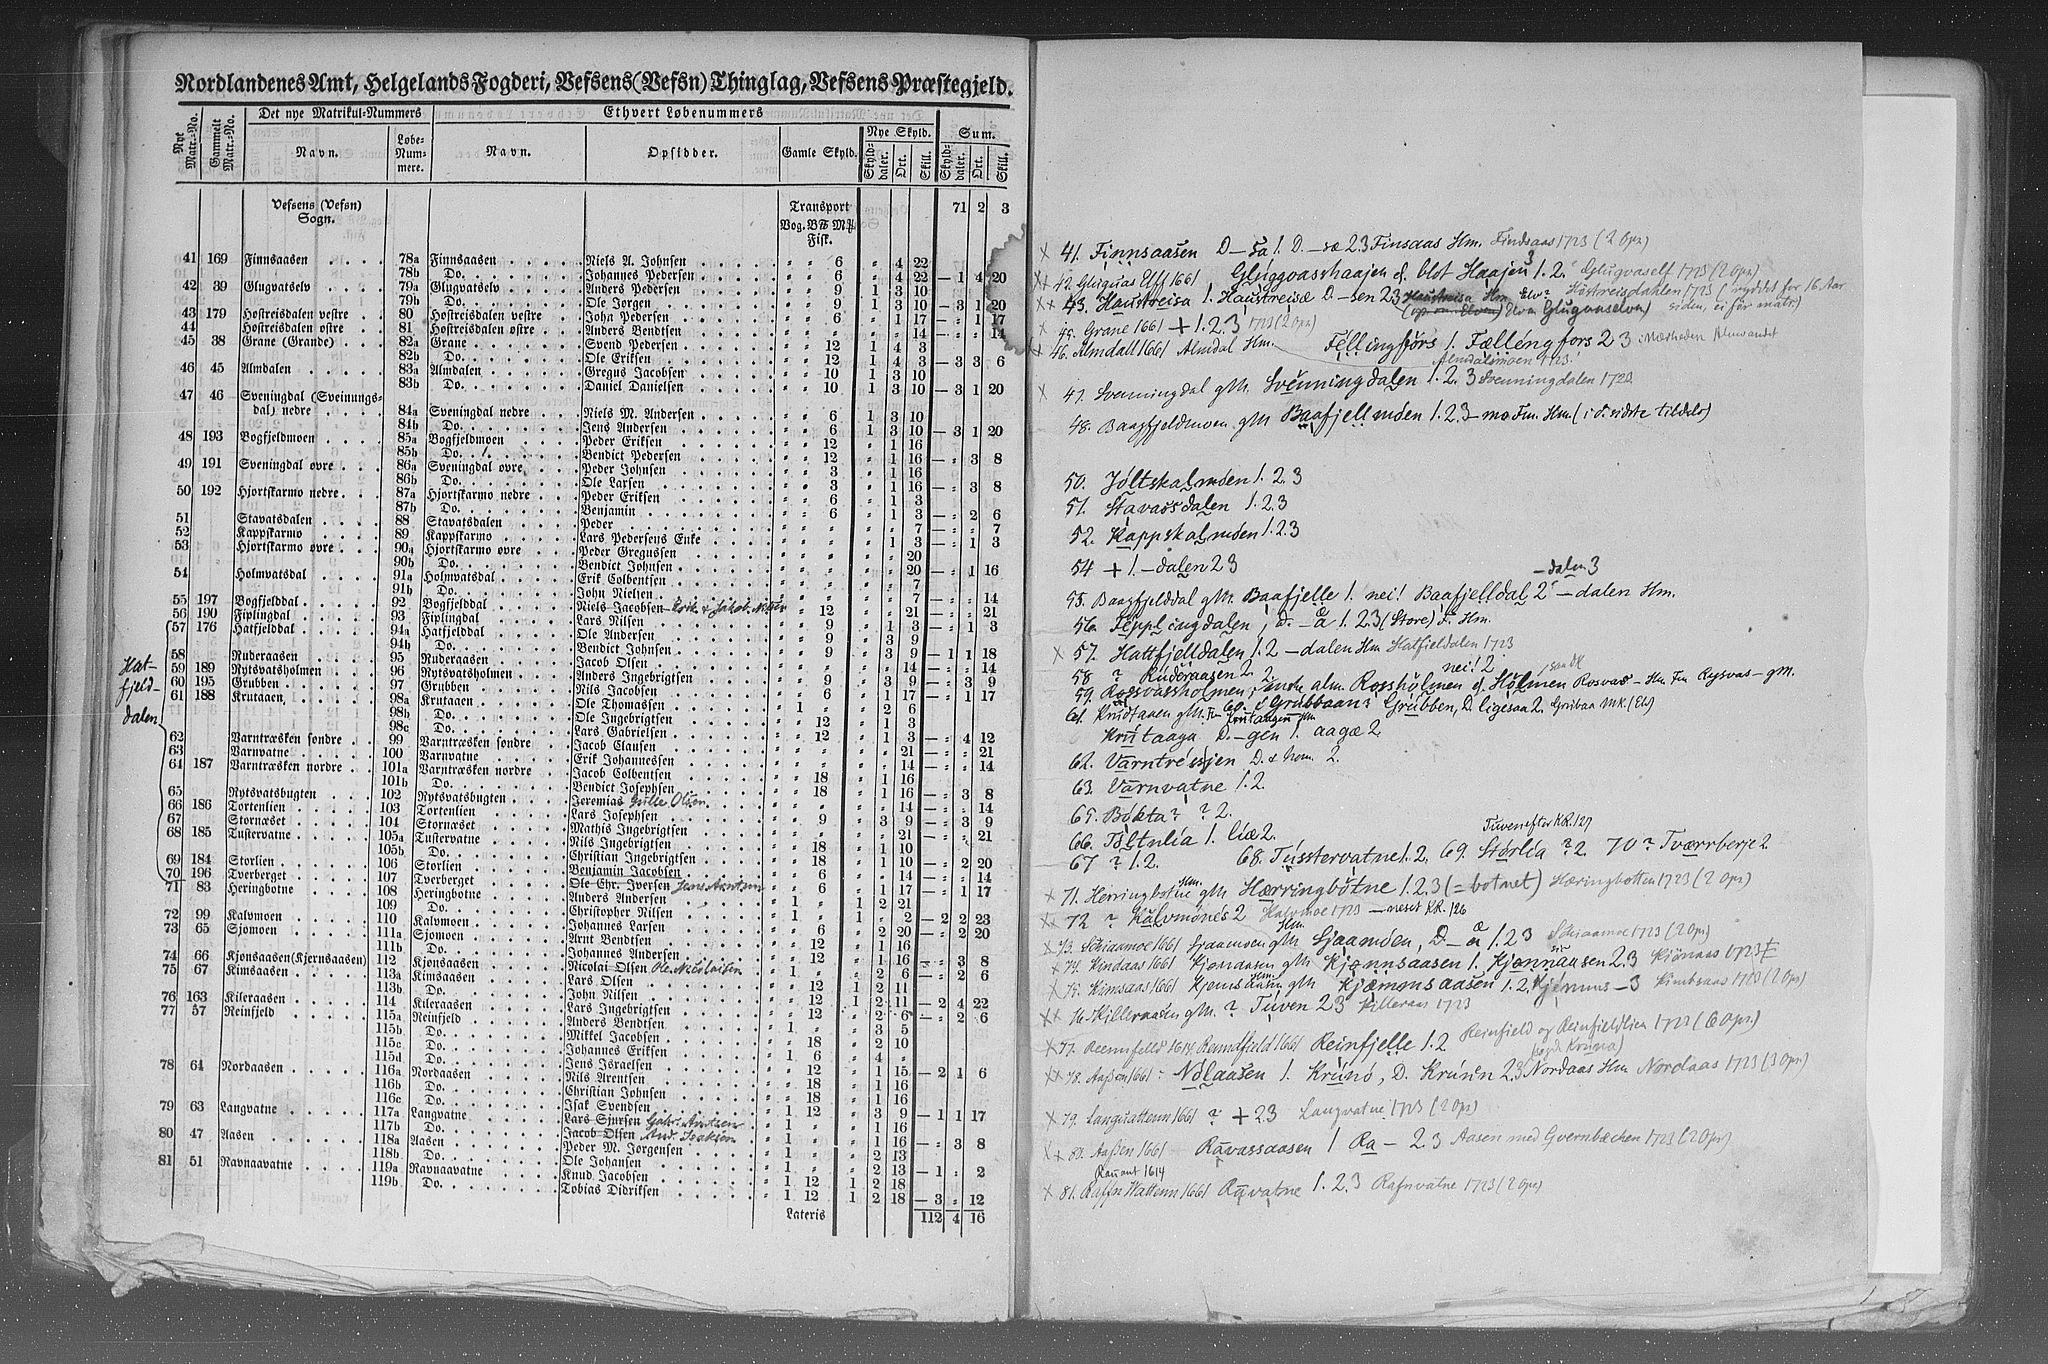 Nordlandenes Amt, Helgelands Fogderi, Vefsens (Vefsn) Thinglag, Vefsens Præstegjeld.
Det nye Matrikul-Nummers Ethvert Løbenummers
Nye Matr.-No. Gammelt Matr.-No. Navn. Løbe-Nummere. Navn. Opsidder. Gamle Skyld. Nye Skyld. Skylddaler. Ort. Skill. Sum. Skylddaler. Ort. Skill.
Vefsens (Vefsn) Sogn. Transport 71 2 3
Bog. Fisk.
41 169 Finnsaasen 78a Finnsaasen Niels A. Johnsen " " 6 " 4 22
78b Do. Johannes Pedersen " " 6 " 4 22 — 1 4 20
42 39 Glugvatselv 79a Glugvatselv Anders Pedersen " " 9 1 3 10
79b Do. Ole Jørgen " " 9 1 3 10 — 3 1 20
43 179 Hostreisdalen vestre 80 Hostreisdalen vestre Joha Pedersen " " 6 " 1 17 — " 1 17
44 Hostreisdalen østre 81 Hostreisdalen østre Anders Bendtsen " " " " " 14 — " " 14
45 38 Grane (Grande) 82a Grane Svend Pedersen " " 12 1 4 3
82b Do. Ole Eriksen " " 12 1 4 3 — 3 3 6
46 45 Almdalen 83a Almdalen Gregus Jacobsen " " 10 1 3 10
83b Do. Daniel Danielsen " " 10 1 3 10 — 3 1 20
47 46 Sveningdal (Sveinungsdal) nedre 84a Sveningdal nedre Niels M. Andersen " " 6 1 3 10
84b Do. Jens Andersen " " 6 1 3 10 — 3 1 20
48 193 Bogfjeldmoen 85a Bogfjeldmoen Peder Eriksen " " 12 " 1 16
85b Do. Bendict Pedersen " " 12 " 1 16 — " 3 8
49 191 Sveningdal øvre 86a Sveningdal øvre Peder Johnsen " " 3 " 1 16
86b Do. Ole Larsen " " 3 " 1 16 — " 3 8
50 192 Hjortskarmo nedre 87a Hjortskarmo nedre Peder Eriksen " " 6 " 1 3
87b Do. Benjamin " " 6 " 1 3 — " 2 6
51 Stavatsdalen 88 Stavatsdalen Peder " " " " " 7 — " " 7
52 Kappskarmo 89 Kappskarmo Lars Pedersens Enke " " " " 1 3 — " 1 3
53 Hjortskarmo øvre 90a Hjortskarmo øvre Peder Gregussen " " " " " 20
90b Do. Bendict Johnsen " " " " " 20 — " 1 16
54 Holmvatsdal 91a Holmvatsdal Erik Colbentsen " " " " " 7
91b Do. John Nielsen " " " " " 7 — " " 14
55 197 Bogfjelddal 92 Bogfjelddal Niels Jacobsen " " 12 " " 21 — " " 21
56 190 Fiplingdal 93 Fiplingdal Lars Nilsen " " 9 " 1 3 — " 1 3
57 176 Hatfjelddal 94a Hatfjelddal Ole Andersen " " 9 " 3 9
94b Do. Bendict Johnsen " " 9 " 3 9 — 1 1 18
58 Ruderaasen 95 Ruderaasen Jacob Olsen " " " " " 14 — " " 14
59 189 Rytsvatsholmen 96 Rytsvatsholmen Anders Ingebrigtsen " " 9 " 3 9 — " 3 9
60 195 Grubben 97 Grubben Nils Jacobsen " " 6 " 1 17 — " 1 17
61 188 Krutaaen 98a Krutaaen Ole Thomassen 1 " " 2 6
98b Do. Ole Ingebrigtsen " " 12 " 1 3
98c Do. Lars Gabrielsen " " 12 " 1 3 — " 4 12
62 Varntræsken søndre 99 Varntræsken søndre Jacob Clausen " " " " " 21 — " " 21
63 Varnvatne 100 Varnvatne Erik Johannessen " " " " " 14 — " " 14
64 187 Varntræsken nordre 101a Varntræsken nordre Jacob Colbentsen " " 18 " 1 16
101b Do. Bendict Josephsen " " 18 " 1 16 — " 3 8
65 Rytsvatsbugten 102 Rytsvatsbugten Jeremias Gulle Olsen " " " " " 14 — " " 14
66 186 Tortenlien 103 Tortenlien Lars Josephsen " " 9 " 3 9 — " 3 9
67 Stornæset 104 Stornæset Mathis Ingebrigtsen " " " " " 21 — " " 21
68 185 Tustervatne 105a Tustervatne Nils Ingebrigtsen " " 18 " 1 10
105b Do. Christian Ingebrigtsen " " 18 " 1 10 — " 2 20
69 184 Storlien 106 Storlien Benjamin Jacobsen " " " " " 14 — " " 14
70 196 Tverberget 107 Tverberget Ole Chr. Iversen Jens Arntsen " " 6 " 1 17 — " 1 17
71 83 Heringbotne 108 Heringbotne Anders Andersen 1 " " 1 2 21
109 Do. Christopher Nilsen 1 " " 1 " 2 — 2 2 23
72 99 Kalvmoen 110 Kalvmoen Johannes Larsen " " 6 " 2 20 — " 2 20
73 65 Sjomoen 111a Sjomoen Arnt Bendtsen " " 12 " 1 16
111b Do. Johannes Andersen " " 12 " 1 16 — " 3 8
74 66 Kjonsaasen (Kjernsaasen) 112 Kjonsaasen Nicolai Olsen Ole Nicolaisen 1 " " " 2 6 — " 2 6
75 67 Kimsaasen 113a Kimsaasen Lars Olsen " " 12 1 2 11
113b Do. John Nilsen " " 12 1 2 11 — 2 4 22
76 163 Kileraasen 114 Kileraasen Lars Ingebrigtsen " " 12 " 2 6 — " 2 6
77 57 Reinfjeld 115a Reinfjeld Anders Bendtsen 1 " " " 3 5
115b Do. Mikkel Jacobsen " " 18 " 2 10
115c Do. Johannes Eriksen 1 " 6 " 4 "
115d Do. Jens Israelsen " " 12 " 1 15 — 2 1 6
78 64 Nordaasen 116a Nordaasen Nils Arentsen " " 18 " 1 16
116b Do. Christian Johnsen " " 18 " 1 16
116c Do. Isak Svendsen 1 " 12 " 3 9 — 1 1 17
79 63 Langvatne 117a Langvatne Lars Sjursen Gabr. Arntsen 1 " " " 1 16
117b Do. Jacob Olsen And. Isaksen 1 " " " 1 16 — " 3 8
80 47 Aasen 118a Aasen Peder M. Jørgensen 1 " " " 2 13
118b Do. Ole Johansen 1 " " " 2 13 — 1 " 2
81 51 Ravnaavatne 119a Ravnaavatne Knud Jacobsen 1 " 12 1 2 18
119b Do. Tobias Didriksen 1 " 12 1 2 18 — 3 " 12
Lateris 112 4 16
Hat-
fjeld-
dalen
x 41. Finnsaasen D – sa 1. D. – sæ 2 3 Finsaas Hm. Findsaas 1723 (2 Opr)
xx 42. Gluguas Elff 1661 Gluggvasshaajen d. blot Haajen 1. 2. 3 Glugvaself 1723 (2 Opr)
xx 43. Haustreisa 1. Haustreisæ D – sen 2 3 Haustreisa Hm. Hostreisdahlen 1723 (ryddet for 16 Aar
Elva Glugvaselva) siden, ei før matr)
x 45. Grane 1661 + 1. 2. 3 1723 (2 Opr)
xx 46. Almdall 1661 Almdal Hm. Fellingfors 1. Fællengfors 2 3
Almdalsmoen 1723
x 47. Svenningdal gM. Svenningdalen 1. 2. 3 Svenningdalen 1723
48. Baagfjeldmoen gM Baafjellmoen 1. 2. 3 – mo Fm. Hm. (i d. sidste tildels)
50. Jøltskalmoen 1. 2. 3
51. Stavassdalen 1. 2. 3
52. Kappskalmoen 1. 2. 3
54 + 1. – dalen 2 3
– dalen 3
55. Baagfjelddal gM. Baafjelle 1. nei! Baafjelldal 2 – dalen Hm.
56. Fepplingdalen, d. – a 1. 2 3 (Store) F. Hm.
x 57. Hattfjelldalen 1. 2 – dalen Hm Hatfieldalen 1723
nei! 2
58 ? Ruderaasen 2.
59. Rossvassholmen, alm. Rossholmen d. Holmen Rosvas – Hm Fm Rysvas – gM.
60. Grubbaan? Grubben, D. ligesaa 2. Grubaa MK. (Elv)
61. Krudtaaen gM. Fm Krutaagen Hm
Krutaaga D. – gen 1. aagæ 2
62. Varntresjen D. & Nom. 2.
63. Varnvatne 1. 2.
65. Bokta? ? 2.
66. Toltnlia 1. liæ 2.
Tuvenefter KR. 127
67 ? 1. 2. 68. Tusstervatne 1. 2. 69. Storlia ? 2. 70 ? Tværrberje 2
x 71. Herringbotne Hm. gM Hærringbotne 1. 2. 3 (= botnet) Hæringbotten 1723 (2 Opr)
xx 72 ? Kalvmones 2 Kalvmoe 1723 – neset KR. 126
xx 73. Schiaamoe 1661 Sjaamoen gM Hm. Sjaamoen, D – a 1. 2 3 Schiaamoe 1723 (2 Opr)
xx 74. Kindaas 1661 Kjøndaasen gM Kjønnsaasen 1. Kjønnaasen 2. 3 Kjønaas 1723
xx 75. Kimsaas 1661 Kjemsaasen Hm gM Kjæmmsaasen 1. 2. Kjemms – 3 Kimbsaas 1723 (2 Opr)
xx 76. Killeraasen gM. ? Tuven 2 3 Killeraas 1723
xx 77. Reennfeld 1614 Randfield 1661 Reinfjelle 1. 2 Reinfield og Reinfieldlien 1723 (6 Opr.)
xx 78. Aaßen 1661 : Nolaasen 1. Kruno, D. Krun'n 2 3 Nordaas Hm Nordaas 1723 (3 Opr)
x 79. Langvattenn 1661 ? + 2 3 Langvatne 1723 (2 Opr)
xx 80. Aaßen 1661 Ravassaasen 1 Ra – 2 3 Aasen med Qvernbæchen 1723 (2 Opr)
1614
x 81. Raffn Wattenn 1661 Ravatne 1. 2. 3 Rafnvatne 1723 (2 Opr)